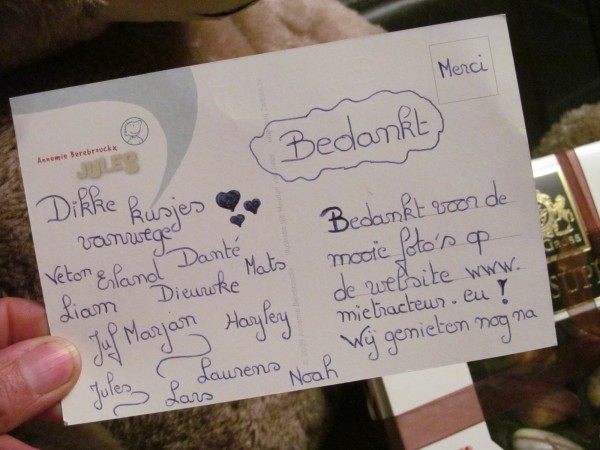 Merci
Annemie Berebrouckx
JULES
Bedankt
Dikke kusjes
vanwege
Veton Erland Danté
Liam Dieuwke Mats
Juf Marjan Hayley
Jules Laurens
Lars Noah
Bedankt voor de
mooie foto's op
de website www.
mietracteur.eu!
Wij genieten nog na
SUP